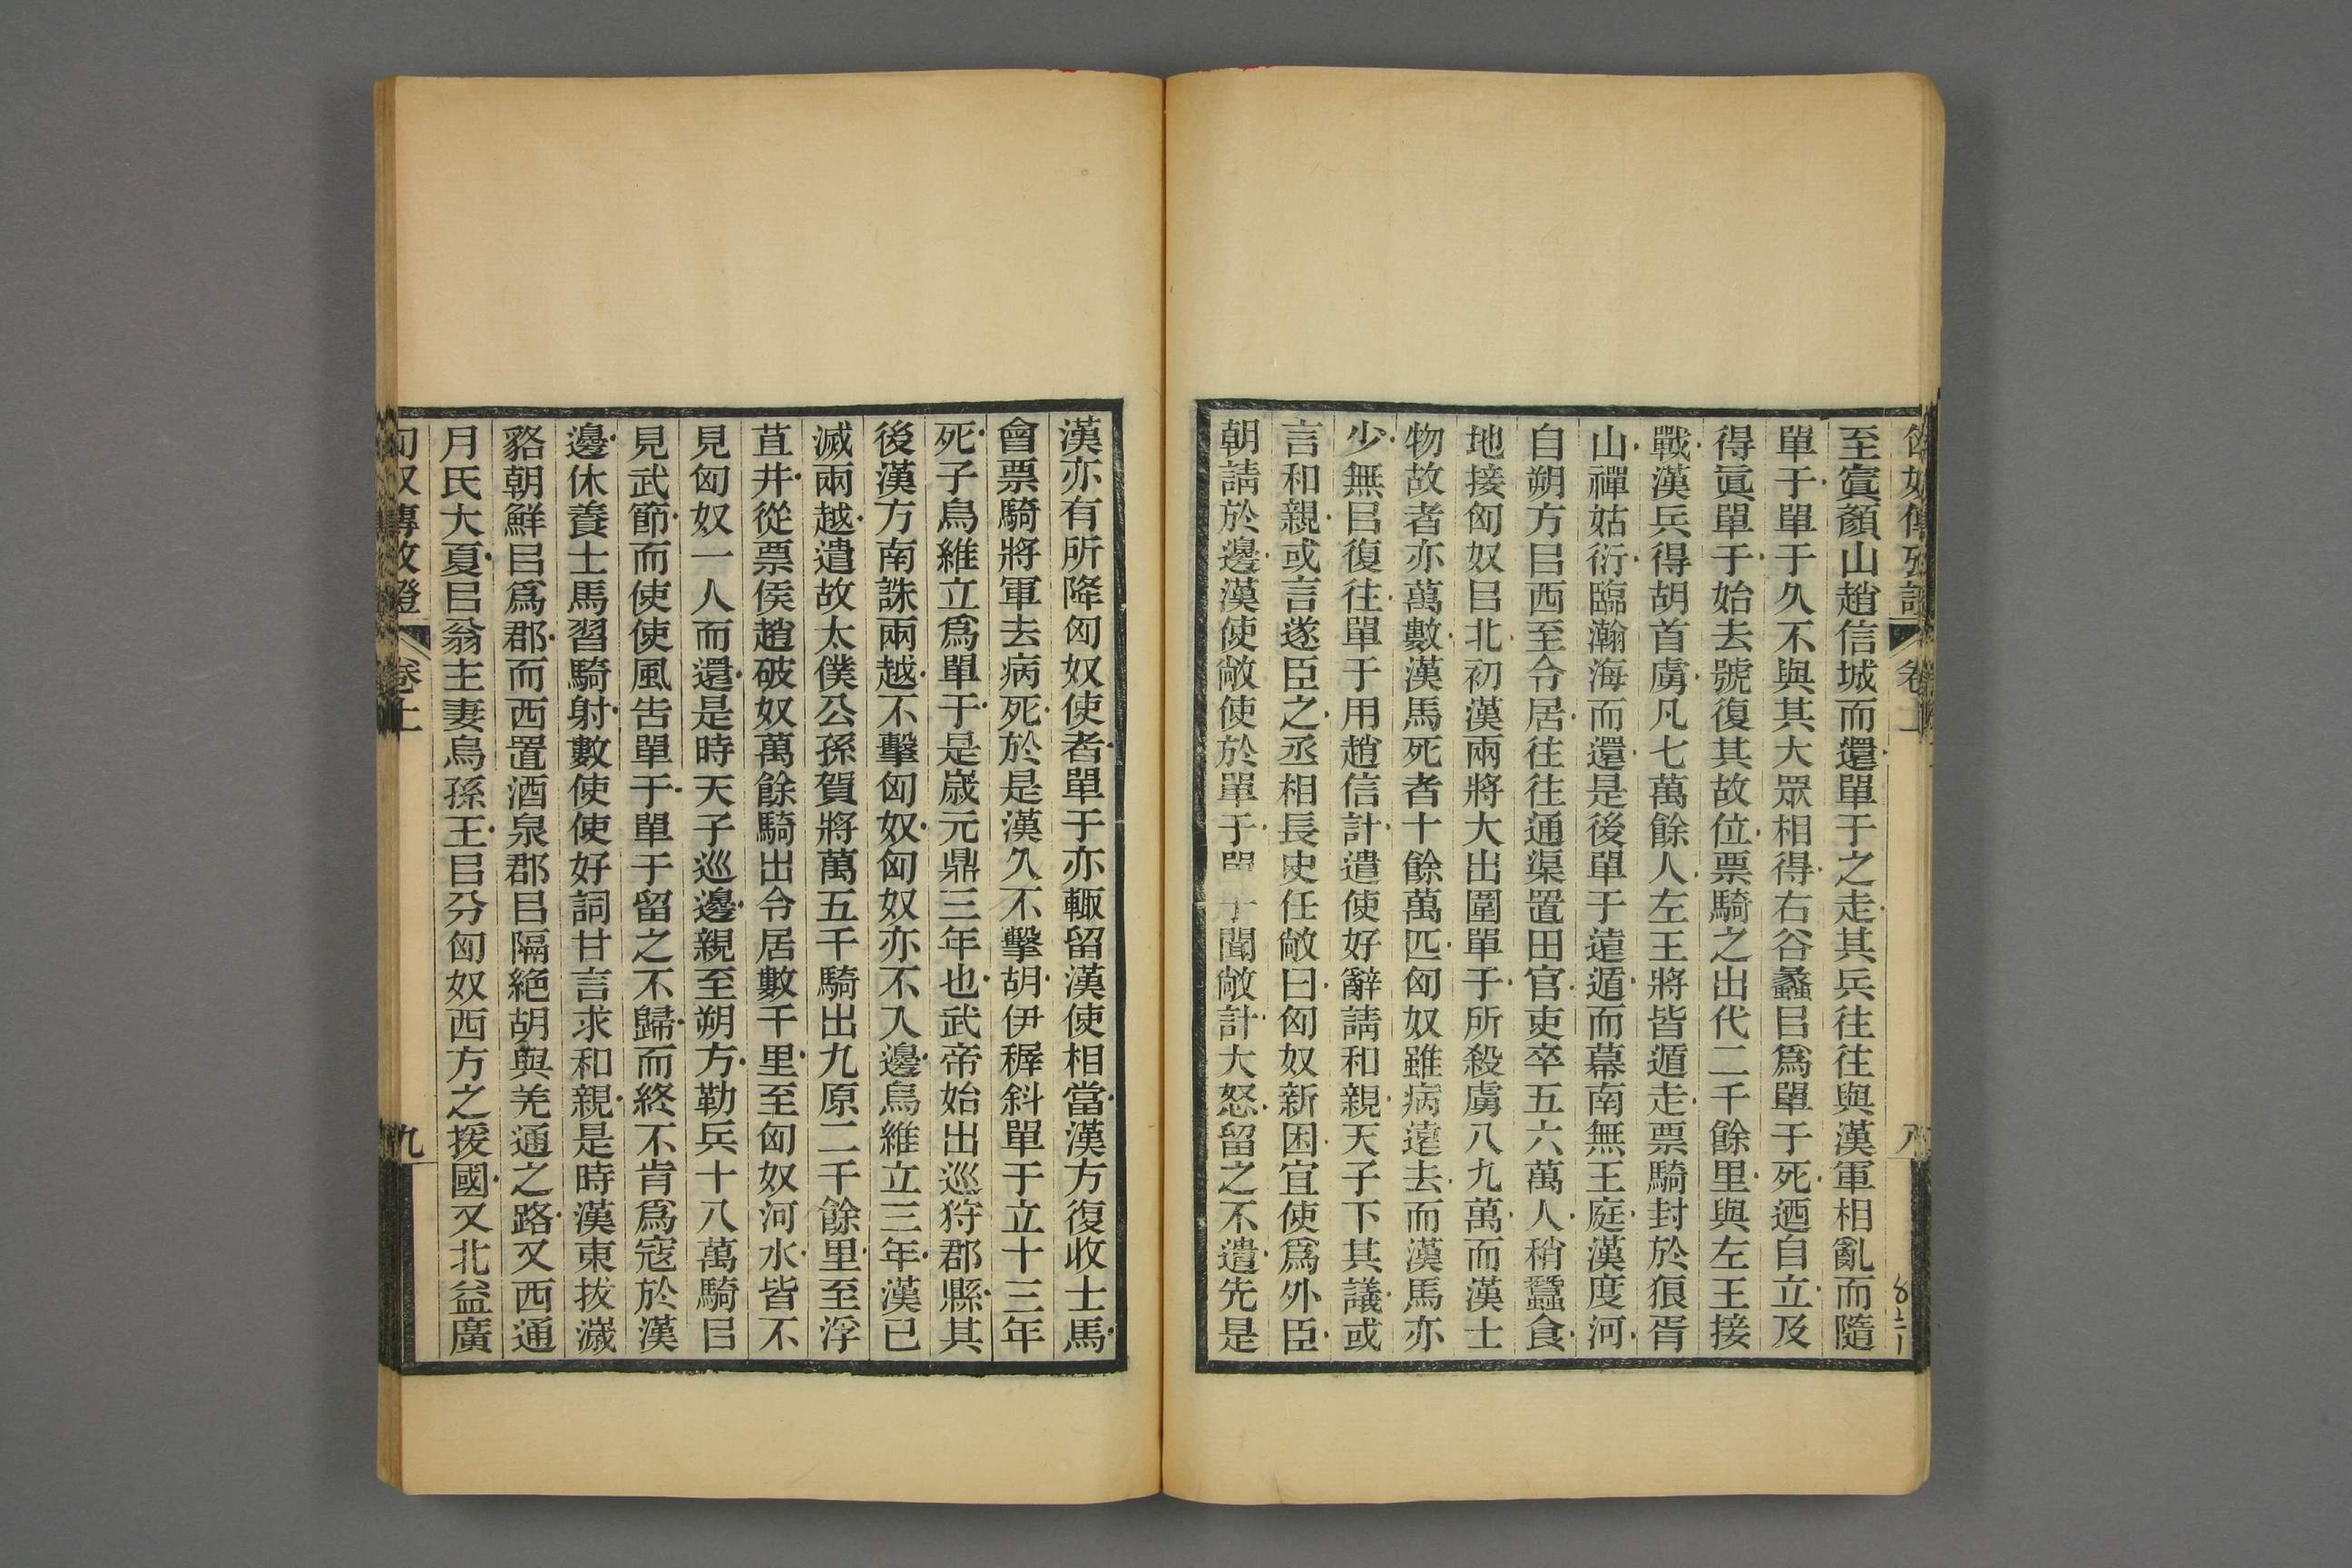 至寘顏山趙信城而還單于之走其兵往往與漢軍相亂而隨
單于單于久不與其大眾相得右谷蠡㠯爲單于死迺自立及
得眞單于始去號復其故位票騎之出代二千餘里與左王接
戰漢兵得胡首虜凡七萬餘人左王將皆遁走票騎封於狼胥
山禪姑衍臨瀚海而還是後單于遠遁而幕南無王庭漢度河
自朔方㠯西至令居往往通渠置田官吏卒五六萬人稍蠶食
地接匈奴㠯北初漢兩將大出圍單于所殺虜八九萬而漢士
物故者亦萬數漢馬死者十餘萬匹匈奴雖病遠去而漢馬亦
少無㠯復往單于用趙信計遣使好辭請和親天子下其議或
言和親或言遂臣之丞相長史任敞曰匈奴新困宜使爲外臣
朝請於邊漢使敞使於單于單于聞敞計大怒留之不遣先是
漢亦有所降匈奴使者單于亦輙留漢使相當漢方復收士馬
會票騎將軍去病死於是漢久不擊胡伊穉斜單于立十三年
死子烏維立爲單于是歲元鼎三年也武帝始出巡狩郡縣其
後漢方南誅兩越不擊匈奴匈奴亦不入邊烏維立三年漢已
滅兩越遣故太僕公孫賀將萬五千騎出九原二千餘里至浮
苴井從票侯趙破奴萬餘騎出令居數千里至匈奴河水皆不
見匈奴一人而還是時天子巡邊親至朔方勒兵十八萬騎㠯
見武節而使使風告單于單于留之不歸而終不肯爲寇於漢
邊休養士馬習騎射數使使好詞甘言求和親是時漢東拔濊
貉朝鮮㠯爲郡而西置酒泉郡㠯隔絶胡與羌通之路又西通
月氏大夏㠯翁主妻烏孫王㠯分匈奴西方之援國又北益廣
匈奴傳攷證 卷上 九